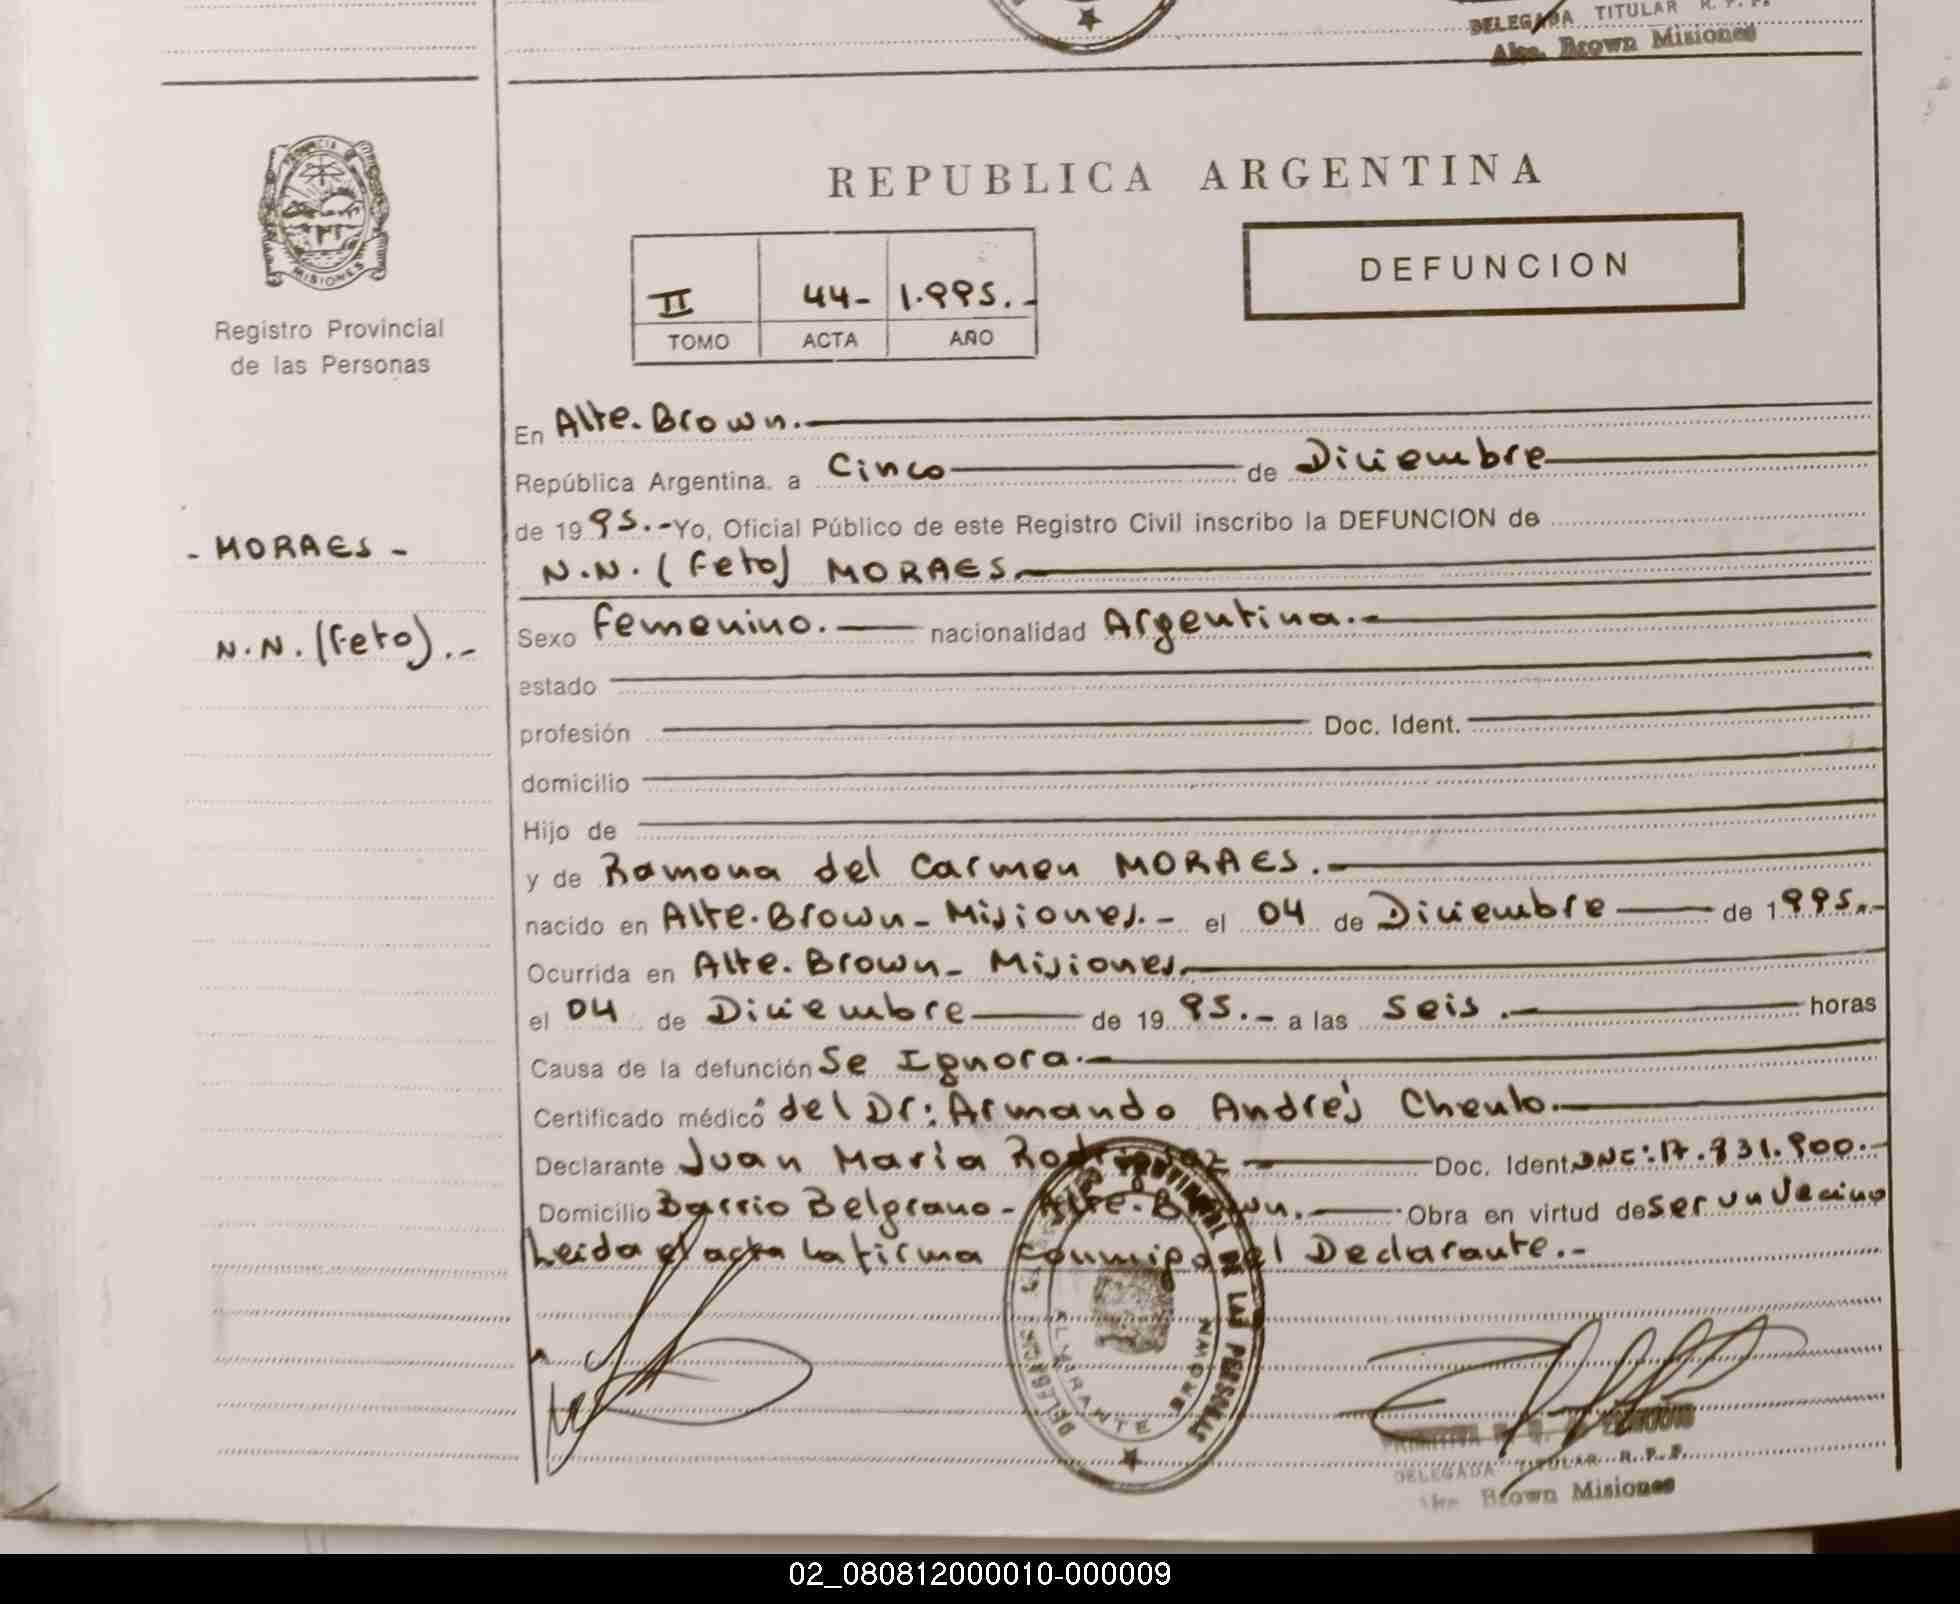 DELEGADA TITULAR R.P.P.
Alte. Brown Misiones
PROVINCIA DE
MISIONES
Registro Provincial
de las Personas
REPUBLICA ARGENTINA
DEFUNCION
II 44- 1.995.-
TOMO ACTA AÑO
En Alte. Brown.
República Argentina, a Cinco de Diciembre
de 1995.- Yo, Oficial Público de este Registro Civil inscribo la DEFUNCION de
- MORAES -
N.N. (Feto) MORAES
N.N. (Feto).-
Sexo Femenino. nacionalidad Argentina.-
estado
profesión Doc. Ident.
domicilio
Hijo de
y de Ramona del Carmen MORAES.-
nacido en Alte. Brown - Misiones.- el 04 de Diciembre de 1995.-
Ocurrida en Alte. Brown - Misiones
el 04 de Diciembre de 1995.- a las Seis.- horas
Causa de la defunción Se Ignora.-
Certificado médico del Dr: Armando Andrés
Declarante Juan María Rodriguez Doc. Ident.
Domicilio Barrio Belgrano - Alte. Brown. Obra en virtud de ser un Vecino
Leida el acta la firma conmigo el Declarante.-
PROVINCIAL DE LAS PERSONAS
ALMIRANTE BROWN
DELEGADA TITULAR R.P.P.
Alte. Brown Misiones
02_080812000010-000009